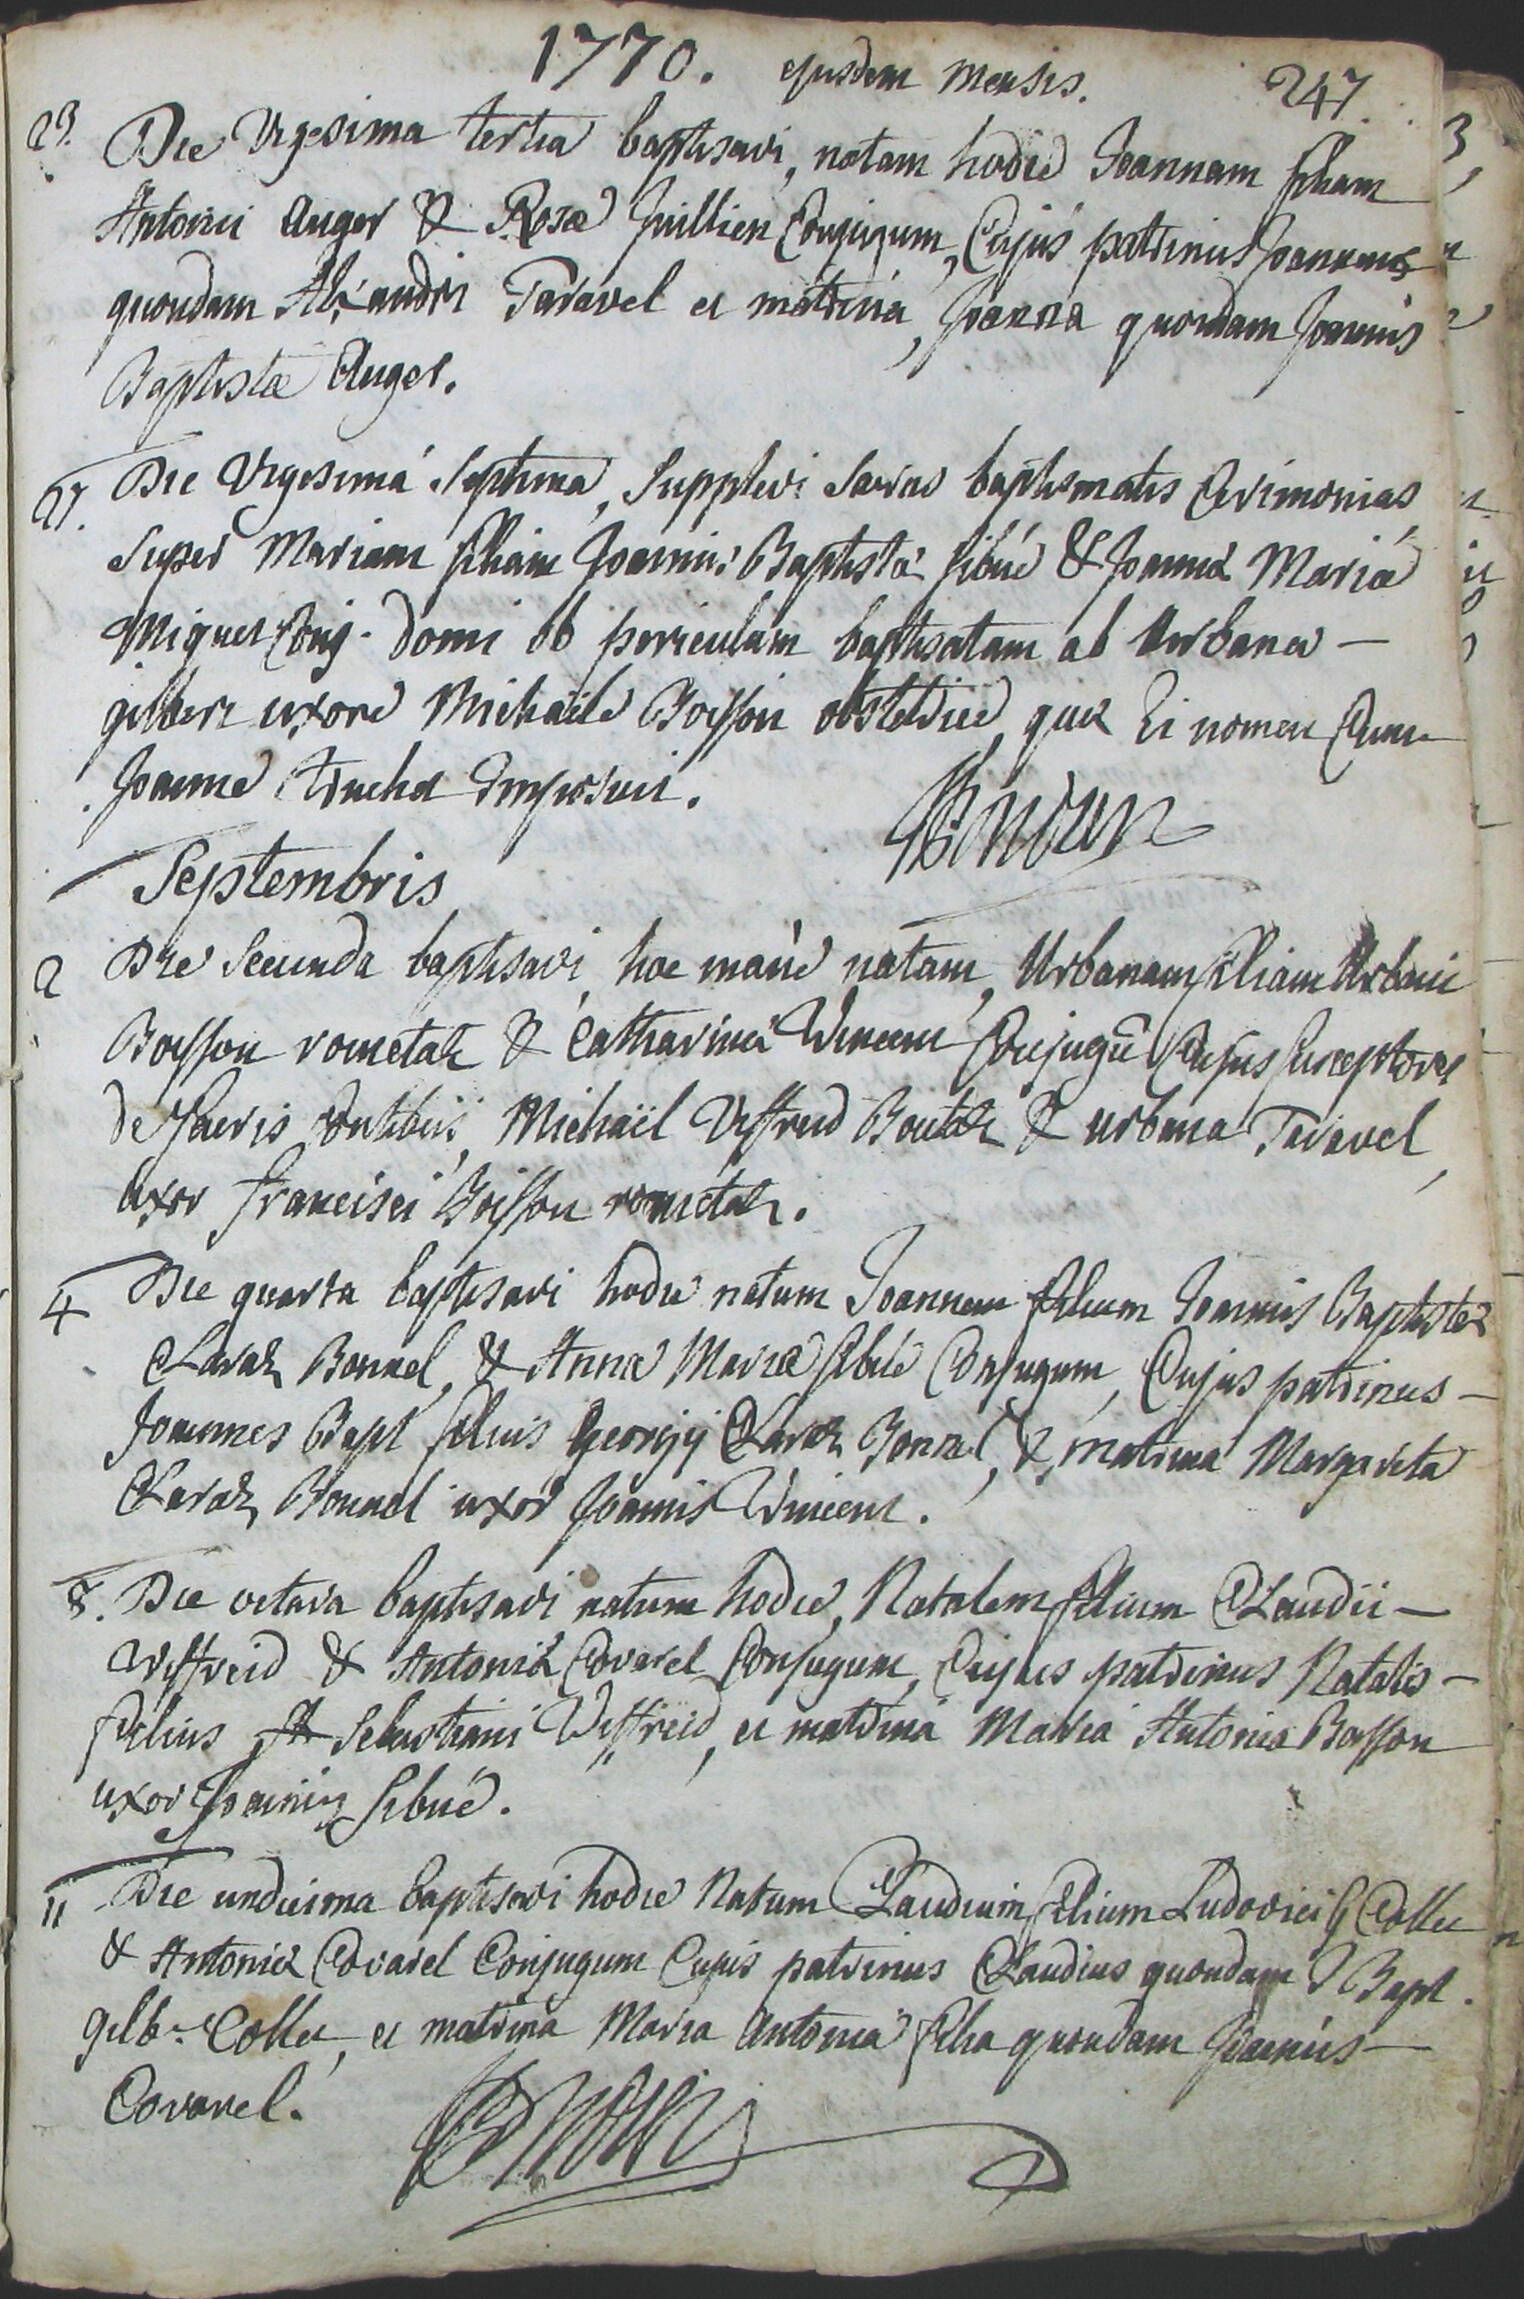 1770. ejusdem mensis. 247.
23. Die Vigesima tertia baptisavi, natam hodie Joannam filiam
Antonii Auger & Rosæ Juillien Conjugum, Cujus patrinus Joannes
quondam Alexandri Taravel et matrina, Joanna quondam Joannis
Baptistæ Auger.
27. Die Vigesimá Septima, Supplevi Sacras baptismatis Cerimonias
Super Mariam filiam Joannis Baptistæ Sibué & Joannæ Mariæ
Miquet Conj. domi ob periculum baptisatam ab Urbana —
gilbert uxore Michaële Boisson obstetrice, quæ Ei nomen Cum
Joanne truchet Imposuit.
Septembris
2 Die Secunda baptisavi, hoc mane natam, Urbanam filiam Urbani
Boisson rometaz & Catharinæ Vincent Conjugū Cujus Susceptores
de Sacris fontibus, Michaël Viffred Boutaz & urbana Taravel,
uxor francisci Boisson rometaz.
4 Die quarta baptisavi hodie natum Joannem filium Joannis Baptistæ
Claraz Bonnel, & Annæ Mariæ Sibué Conjugum, Cujus patrinus —
Joannes Bapt filius Georgij Claraz Bonnel, & matrina Margarita
Claraz Bonnel uxor Joannis Vincent.
8. Die octava baptisavi natum hodie, Natalem filium Claudii —
Viffreid & Antoniæ Covarel Conjugum, Cujus patrinus Natalis —
filius Sebastiani Viffreid, et matrina Maria Antonia Boisson
uxor Joannis Sibué.
11 Die undecima baptisavi hodie Natum Claudium filium Ludovici G Collet
& Antoniæ Covarel Conjugum Cujus patrinus Claudius quondam J Bapt.
gilb. Collet, et matrina Maria Antonia filia quondam Joannis —
Covarel.